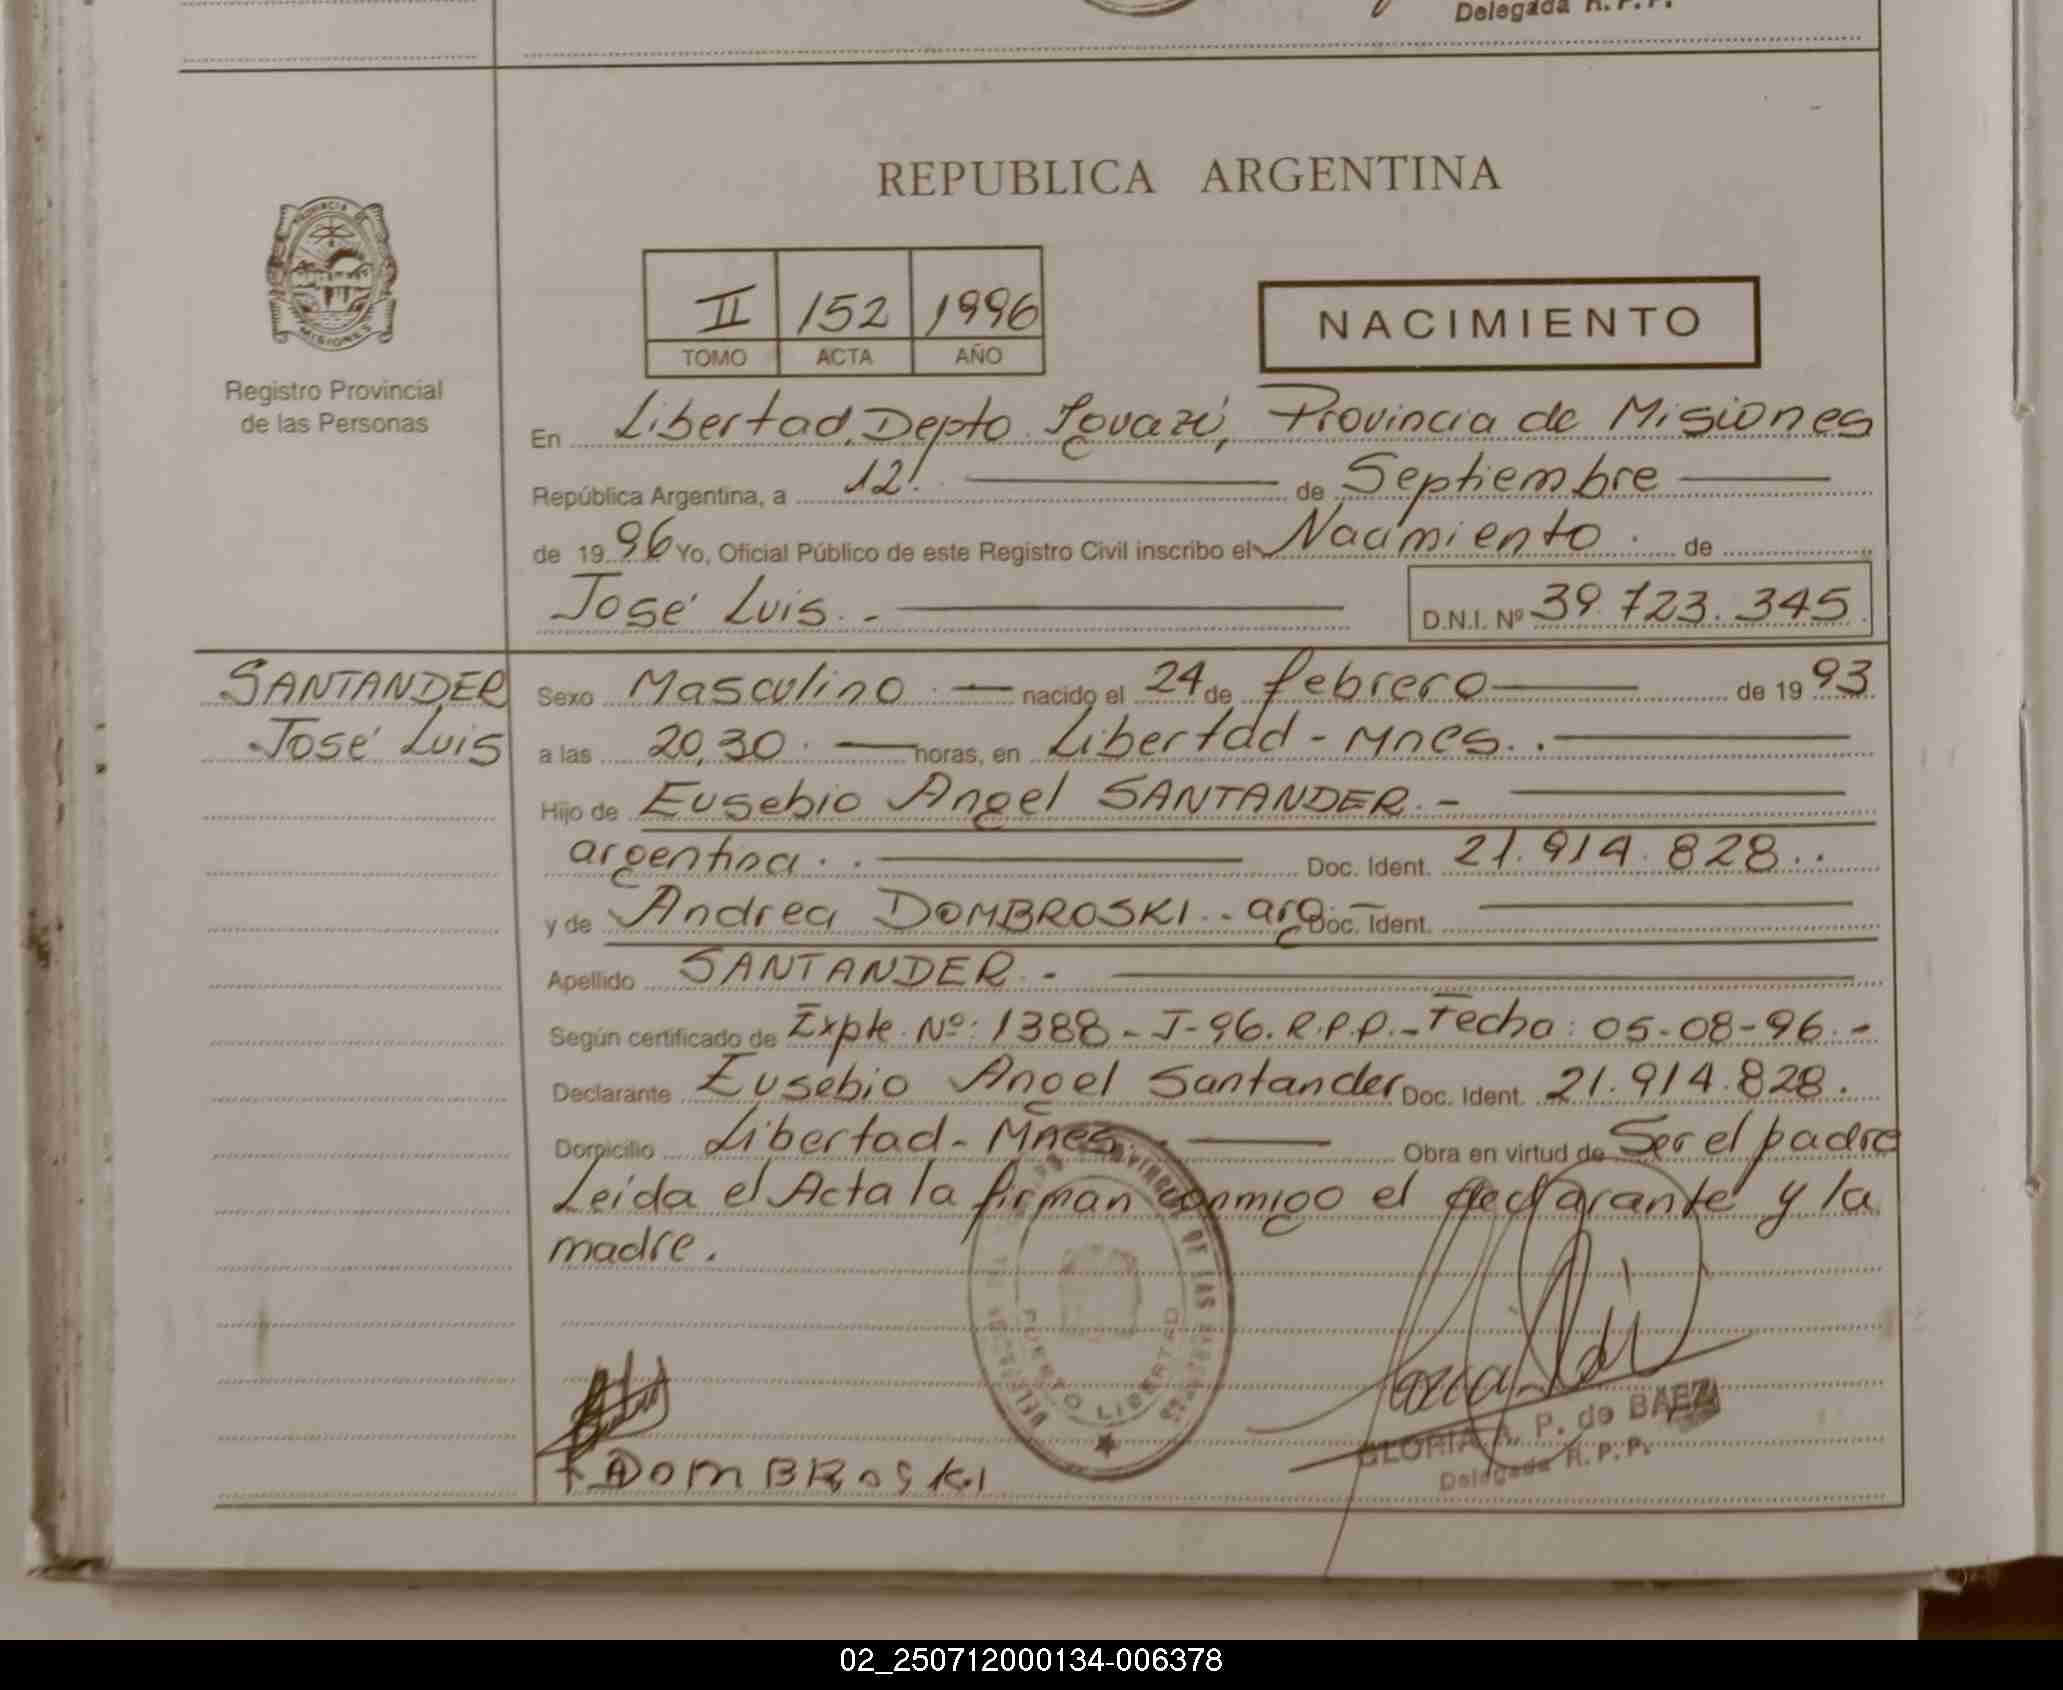 Delegada R.P.P.
REPUBLICA ARGENTINA
PROVINCIA DE
MISIONES
Registro Provincial
de las Personas
II 152 1996
TOMO ACTA AÑO
NACIMIENTO
En Libertad, Depto Iguazú, Provincia de Misiones
República Argentina, a 12. de Septiembre
de 1996 Yo, Oficial Público de este Registro Civil inscribo el Nacimiento. de
José Luis. -
D.N.I. Nº 39.723.345
SANTANDER
José Luis
Sexo Masculino. nacido el 24 de febrero de 1993
a las 20,30. horas, en Libertad - Mnes..
Hijo de Eusebio Angel SANTANDER. -
argentina.. Doc. Ident. 21.914.828..
y de Andrea DOMBROSKI.. arg. Doc. Ident.
Apellido SANTANDER. -
Según certificado de Expte. Nº: 1388 - J-96. R.P.P. - Fecha: 05-08-96. -
Declarante Eusebio Angel Santander Doc. Ident. 21.914.828.
Domicilio Libertad - Mnes. Obra en virtud de Ser el padre
Leída el Acta la firman conmigo el declarante y la
madre.
PUERTO LIBERTAD
DOMBROSKI
GLORIA A. P. de BAEZ
Delegada R.P.P.
02_250712000134-006378